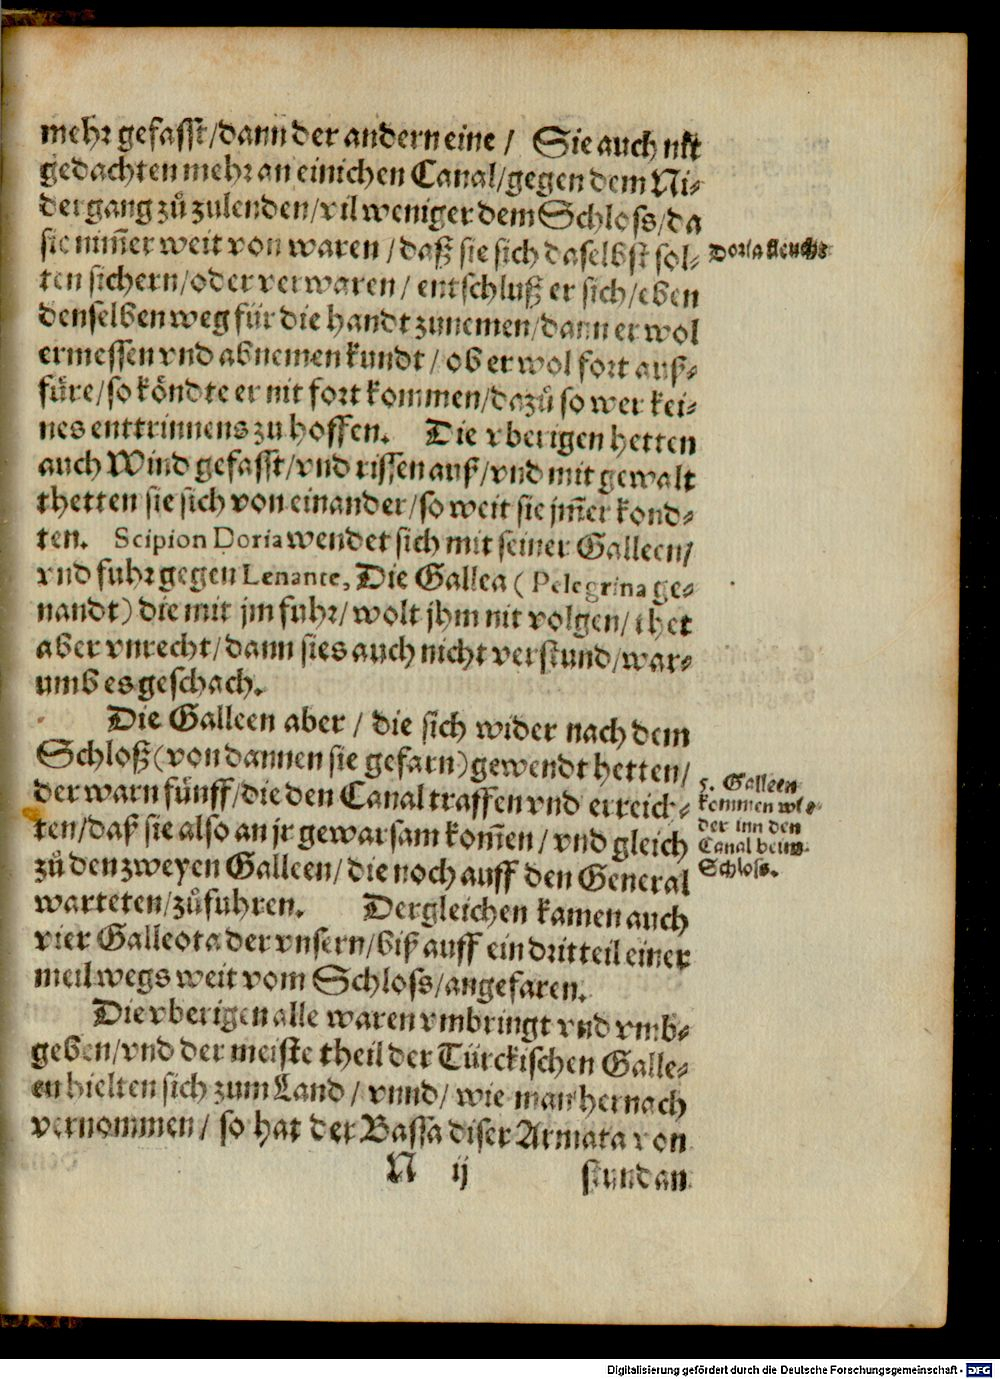 mehr gefasst/dann der andern eine / Sie auch nit
gedachten mehr an einichen Canal/gegen dem Ni-
dergang zů zulenden/vil weniger dem Schloss/da
sie nim̃er weit von waren / daß sie sich daselbst sol-
Doria fleucht
ten sichern/oder verwaren / entschluß er sich/eben
denselben weg für die handt zunemen/dann er wol
ermessen vnd abnemen kundt / ob er wol fort auß-
füre/so köndte er nit fort kommen/dazů so wer kei-
nes enttrinnens zu hoffen. Die vberigen hetten
auch Wind gefasst/vnd rissen auß/vnd mit gewalt
thetten sie sich von einander/so weit sie jm̃er kond-
ten. Scipion Doria wendet sich mit seiner Galleen/
vnd fuhr gegen Lenante, Die Gallea ( Pelegrina ge-
nandt) die mit jm fuhr/ wolt jhm nit volgen/ thet
aber vnrecht/dann sies auch nicht verstund/war-
umb es geschach.
Die Galleen aber / die sich wider nach dem
Schloß (von dannen sie gefarn) gewendt hetten/
der warn fünff/die den Canal traffen vnd erreich-
ten/daß sie also an jr gewarsam kom̃en / vnd gleich
zů den zweyen Galleen/ die noch auff den General
warteten/zůfuhren. Dergleichen kamen auch
5. Galleen
kommen wi-
der inn den
Canal beim
Schloss.
vier Galleota der vnsern/biß auff ein dritteil einer
meil wegs weit vom Schloss/angefaren.
Die vberigen alle waren vmbringt vnd vmb-
geben/vnd der meiste theil der Türckischen Galle-
en hielten sich zum Land / vnnd/ wie man hernach
vernommen/ so hat der Bassa diser Armata von
N ij stundan
Digitalisierung gefördert durch die Deutsche Forschungsgemeinschaft - DFG